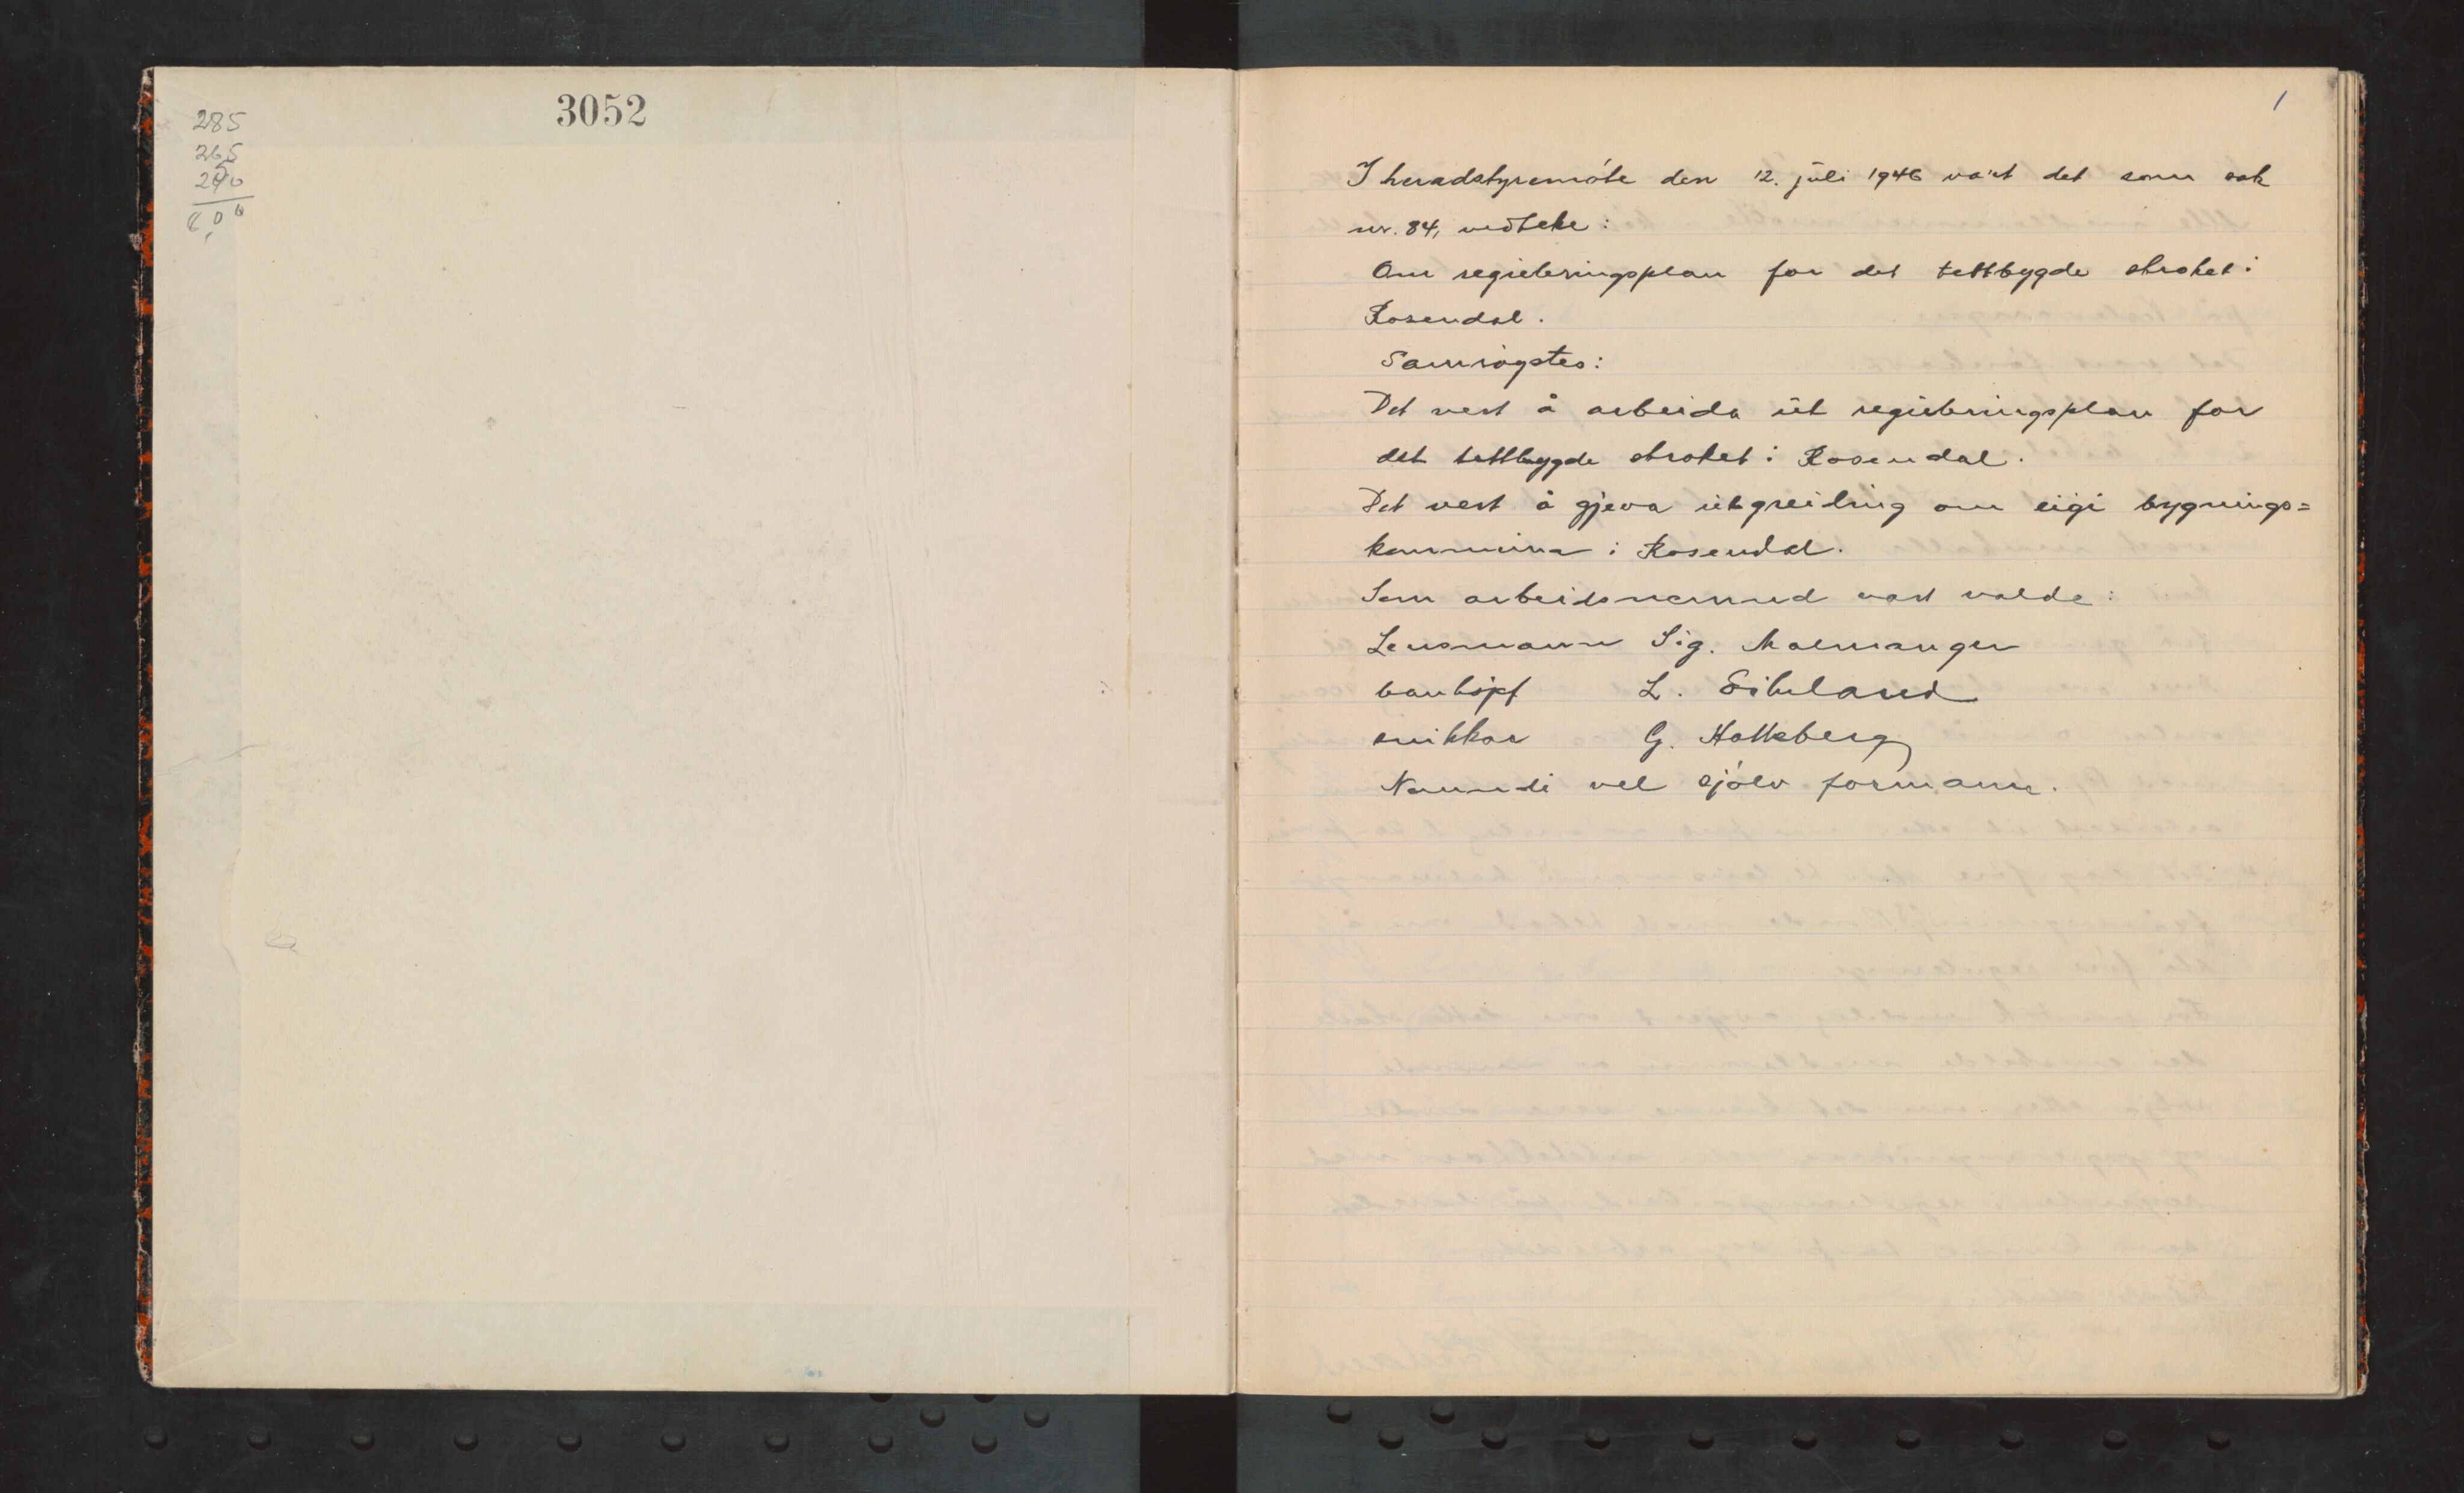 3052
285
265
1
I heradstyremöte den 12. juli 1946 vart det som sak
nr. 84, vedteke:
Om reguleringsplan for det tettbygde stroket i
Rosendal.
Samröystes:
Det vert å arbeida ut reguleringsplan for
det tettbygde stroket i Rosendal.
Det vert å gjeva utgreiding om eigi bygnings=
kommuna i Rosendal.
Som arbeidsnemnd vart valde:
Lensmann Sig. Malmanger
banksjef L. Eikeland
snikkar G. Hatteberg
Nemndi vel sjölv formann.